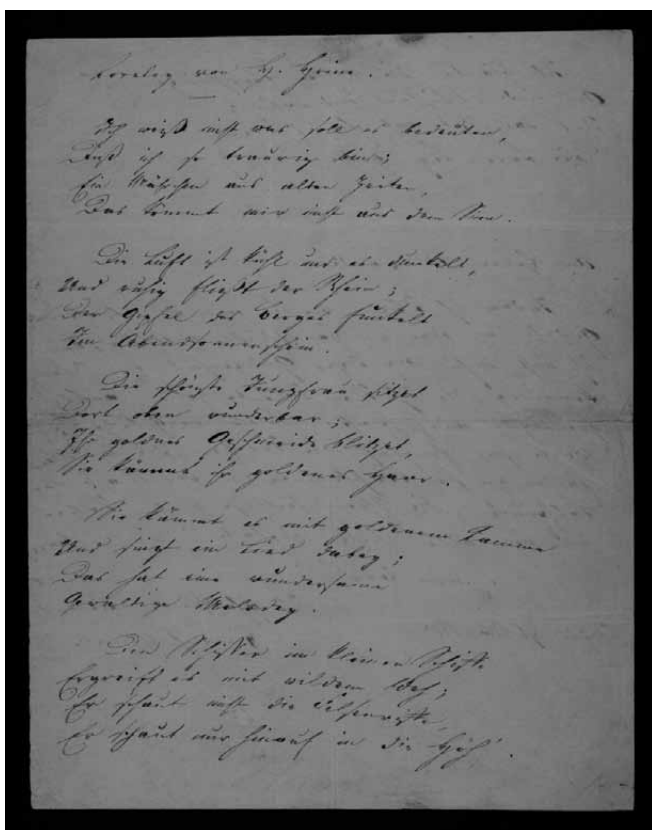 Loreley von H. Heine.
Ich weiß nicht was soll es bedeuten,
Daß ich so traurig bin;
Ein Mährchen aus alten Zeiten,
Das kommt mir nicht aus dem Sinn.
Die Luft ist kühl und es dunkelt,
Und ruhig fließt der Rhein;
Der Gipfel des Berges funkelt
Im Abendsonnenschein.
Die schönste Jungfrau sitzet
Dort oben wunderbar;
Ihr goldnes Geschmeide blitzet,
Sie kämmt ihr goldenes Haar.
Sie kämmt es mit goldenem Kamme
Und singt ein Lied dabey;
Das hat eine wundersame
Gewaltige Melodey.
Den Schiffer im kleinen Schiffe
Ergreift es mit wildem Weh;
Er schaut nicht die Felsenriffe,
Er schaut nur hinauf in die Höh'.